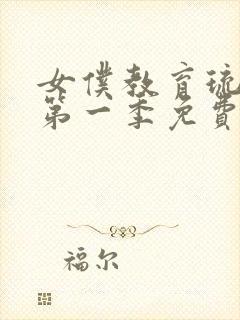 女僕教育琉
第一季免費
福尔